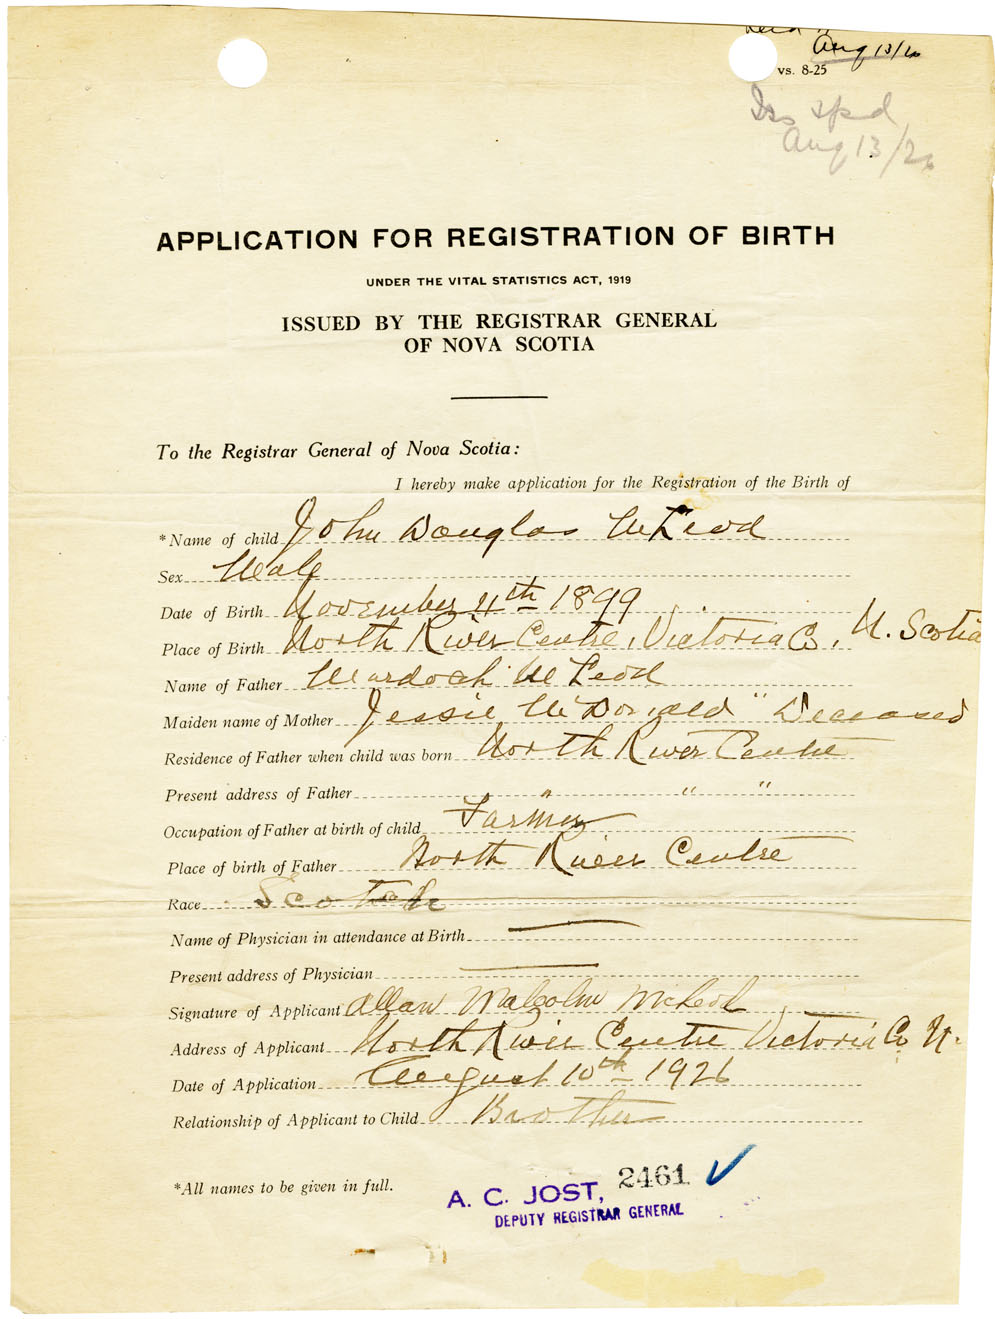 Aug 13/26
vs. 8-25
Aug 13/26
APPLICATION FOR REGISTRATION OF BIRTH
UNDER THE VITAL STATISTICS ACT, 1919
ISSUED BY THE REGISTRAR GENERAL
OF NOVA SCOTIA
To the Registrar General of Nova Scotia:
I hereby make application for the Registration of the Birth of
*Name of child John Douglas McLeod
Sex Male
Date of Birth November 4th 1899
Place of Birth North River Centre, Victoria Co, N. Scotia
Name of Father Murdoch McLeod
Maiden name of Mother Jessie McDonald "Deceased
Residence of Father when child was born North River Centre
Present address of Father " " "
Occupation of Father at birth of child Farmer
Place of birth of Father North River Centre
Race Scotch
Name of Physician in attendance at Birth —
Present address of Physician —
Signature of Applicant Allan Malcolm McLeod
Address of Applicant North River Centre Victoria Co N.
Date of Application August 10th 1926
Relationship of Applicant to Child Brother
*All names to be given in full.
2461 ✓
A. C. JOST,
DEPUTY REGISTRAR GENERAL